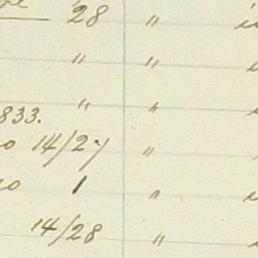 28 "
" "
" "
833.
o 14/27 "
o 1 "
14/28 "